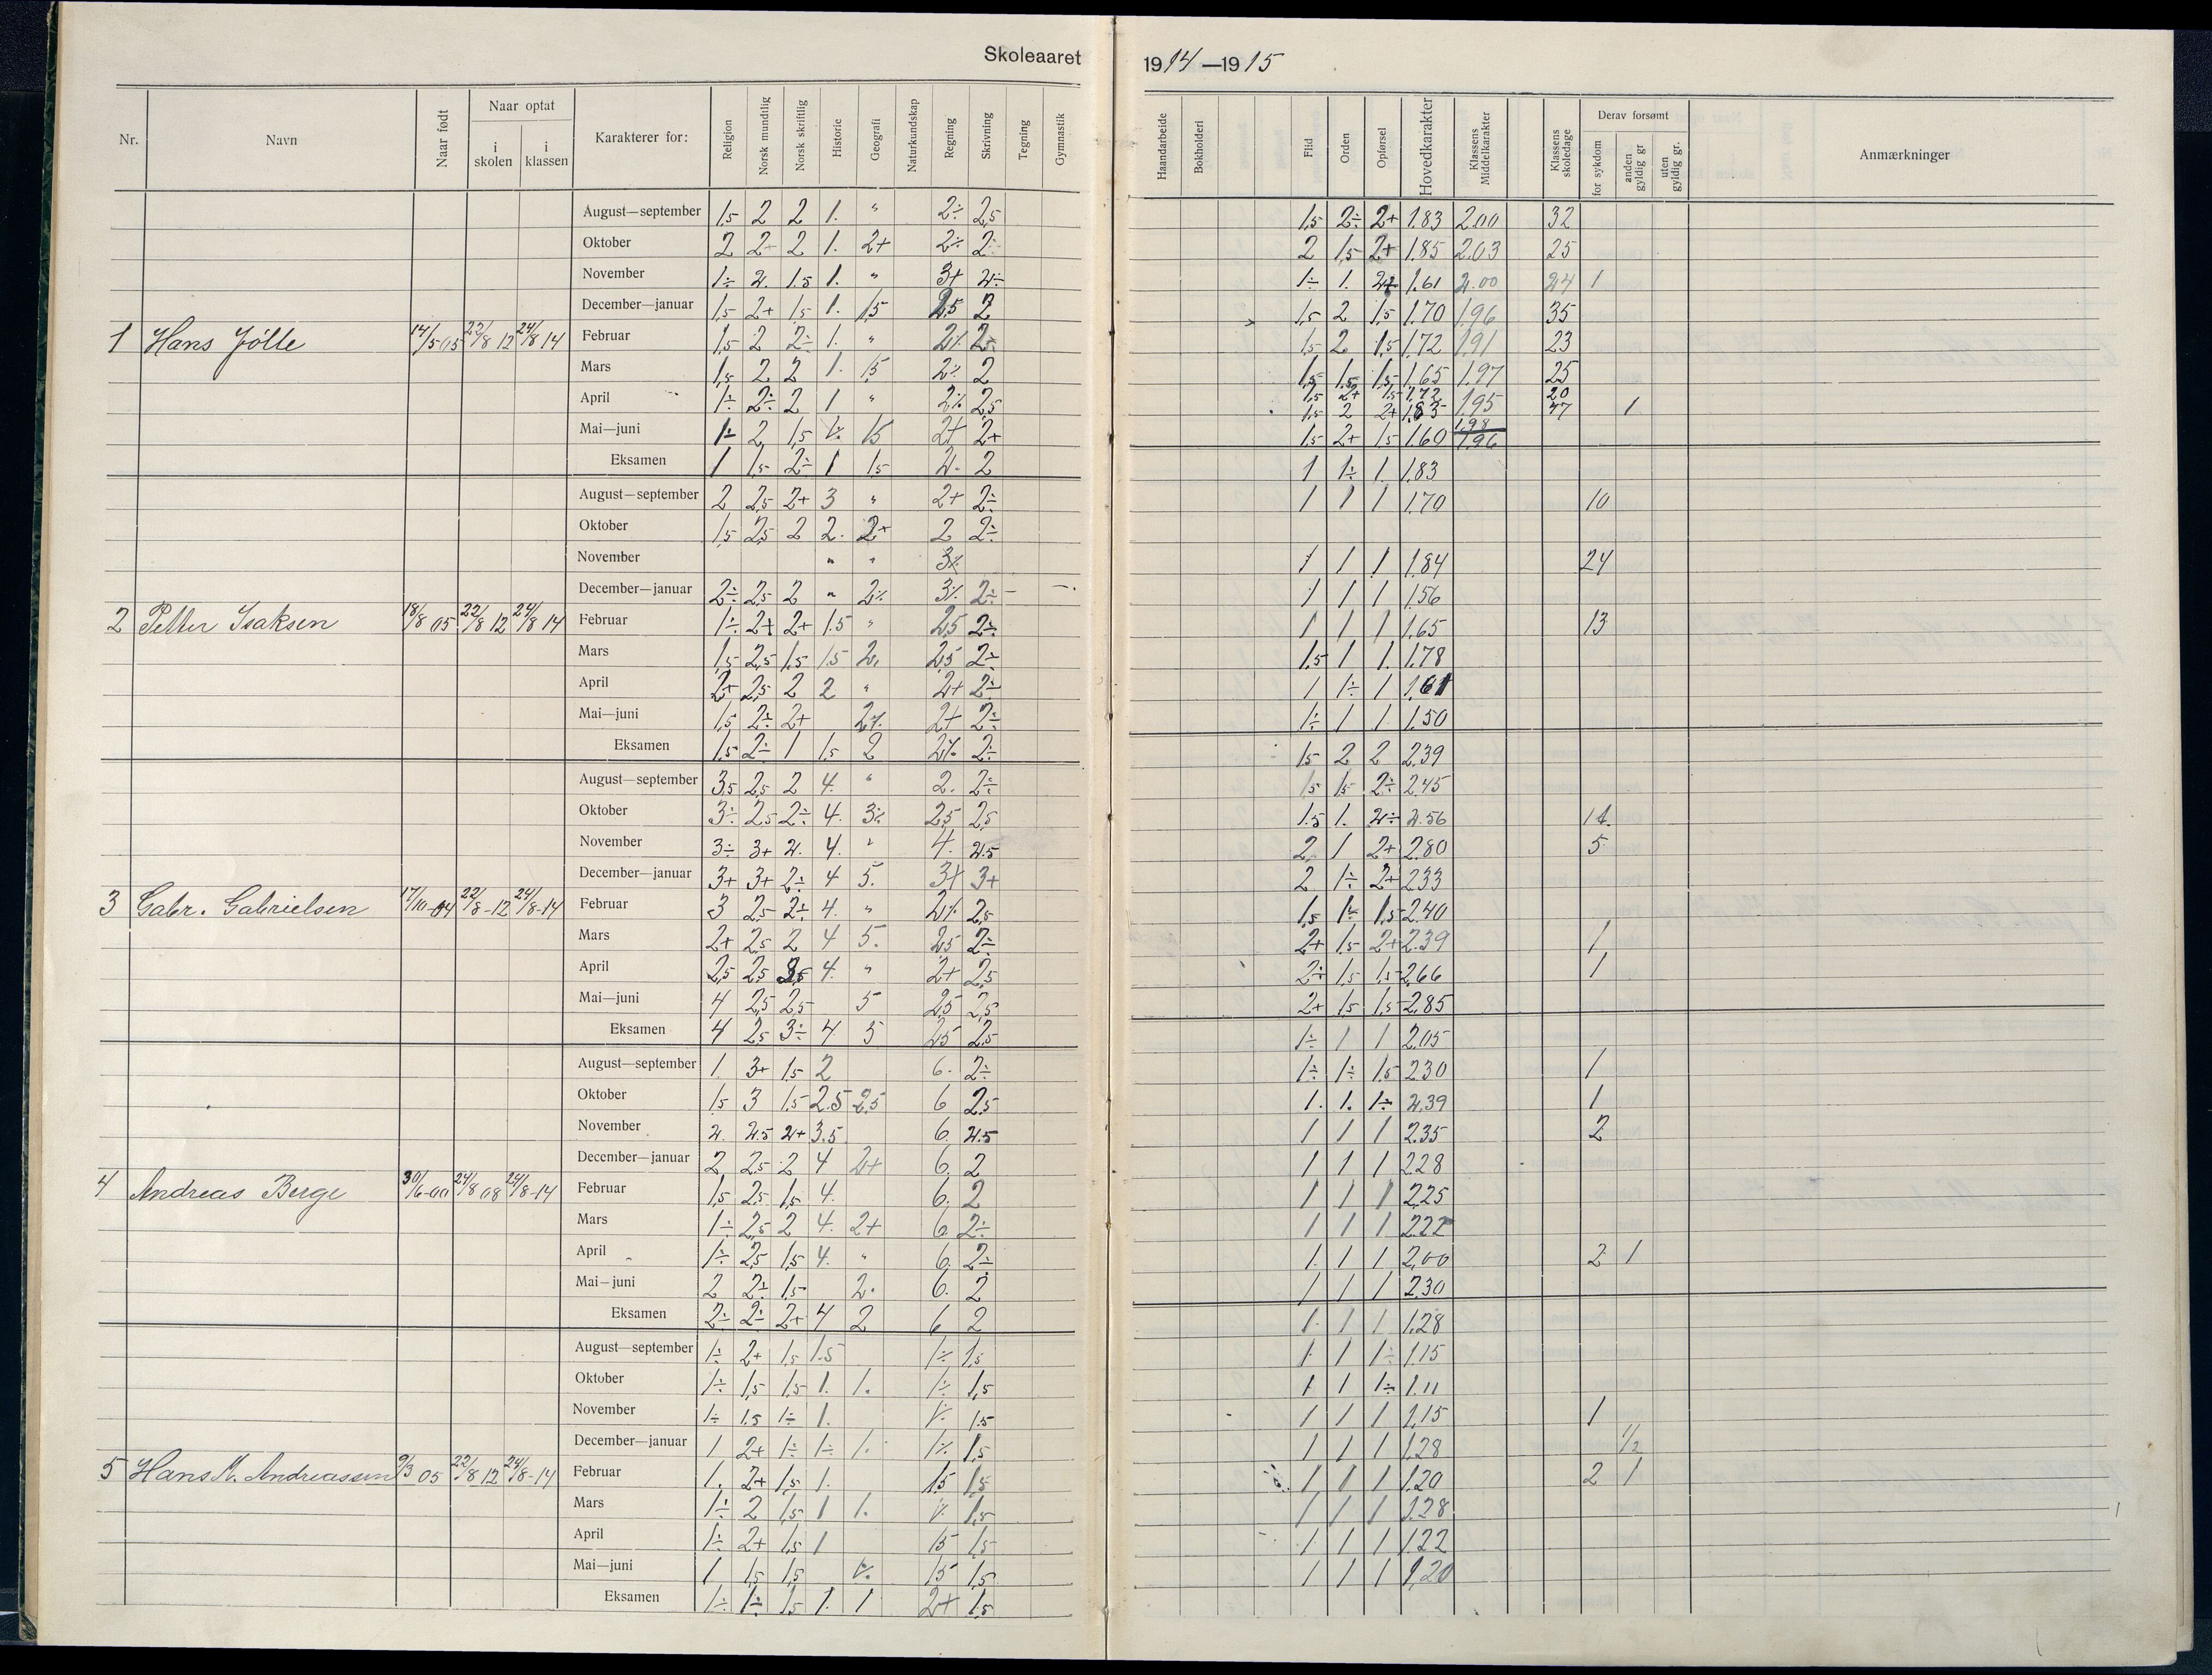 Skoleaaret 1914—1915
Nr. Navn Naar født Naar optat i skolen i klassen Karakterer for: Religion Norsk mundtlig Norsk skriftlig Historie Geografi Naturkundskap Regning Skrivning Tegning Gymnastik Haandarbeide Bokholderi Flid Orden Opførsel Hovedkarakter Klassens Middelkarakter Klassens skoledage Derav forsømt for sykdom anden gyldig gr uten gyldig gr. Anmærkninger
August—september 1,5 2 2 1. " 2÷ 2,5 1,5 2÷ 2+ 1.83 2.00 32
Oktober 2 2- 2 1. 2+ 2÷ 2- 2 1,5 2+ 1.85 2.03 25
November 1÷ 2. 1.5 1. " 3+ 2÷ 1÷ 1. 2+ 1.61 2.00 24 1
December—januar 1,5 2+ 1,5 1. 1,5 2,5 2 1,5 2 1,5 1.70 1.96 35
1 Hans Jølle 14/5 05 22/8 12 24/8 14 Februar 1,5 2 2÷ 1. " 2% 2÷ 1,5 2 1,5 1.72 1.91 23
Mars 1,5 2 2 1. 1,5 2% 2 1,5 1,5 1,5 1.65 1.97 25
April 1÷ 2÷ 2 1 " 2% 2,5 1,5 2+ 1,5 1.72 1.95 20
1,5 2 2+ 1.83 47 1
Mai—juni 1÷ 2 1,5 1% 1,5 2+ 2+ 1,5 2+ 1,5 1.60 1.98 1.96
Eksamen 1 1,5 2÷ 1 1,5 2. 2 1 1÷ 1. 1.83
August—september 2 2,5 2+ 3 " 2+ 2÷ 1 1 1 1.70 10
Oktober 1,5 2,5 2 2. 2+ 2 2÷
November " " 3% 1 1 1 1.84 24
December—januar 2÷ 2,5 2 " 2% 3% 2÷ 1 1 1 1.56
2 Petter Isaksen 18/8 05 22/8 12 24/8 14 Februar 1÷ 2+ 2+ 1.5 " 2,5 2÷ 1 1 1 1.65 13
Mars 1,5 2,5 1,5 1.5 2. 2,5 2÷ 1,5 1 1. 1.78
April 2+ 2,5 2 2 " 2+ 2÷ 1 1÷ 1 1.61
Mai—juni 1,5 2÷ 2+ 2% 2+ 2÷ 1÷ 1 1 1.50
Eksamen 1,5 2÷ 1 1,5 2 2% 2÷ 1,5 2 2 2.39
August—september 3,5 2,5 2 4. " 2. 2÷ 1,5 1,5 2÷ 2.45
Oktober 3÷ 2,5 2÷ 4. 3% 2,5 2,5 1.5 1. 2÷ 2.56
November 3÷ 3+ 2. 4. " 4. 2.5 2 1 2+ 2.80 5
December—januar 3+ 3+ 2÷ 4 5. 3+ 3+ 2 1÷ 2+ 2.33
3 Gabr. Gabrielsen 17/10-04 22/8-12 24/8-14 Februar 3 2,5 2÷ 4. " 2% 2,5 1,5 1÷ 1,5 2.40
Mars 2+ 2,5 2 4 5. 2,5 2÷ 2+ 1,5 2+ 2.39 1
April 2,5 2,5 3,5 4. " 2+ 2,5 2÷ 1,5 1,5 2.66 1
Mai—juni 4 2,5 2,5 5 2,5 2,5 2+ 1,5 1,5 2.85
Eksamen 4 2,5 3÷ 4 5 2,5 2,5 1÷ 1 1 2.05
August—september 1. 3+ 1,5 2 6. 2÷ 1÷ 1÷ 1,5 2.30 1
Oktober 1,5 3 1,5 2.5 2,5 6 2,5 1. 1. 1÷ 2.39 1
November 2. 2.5 2+ 3.5 6. 2.5 1 1 1 2.35 2
December—januar 2 2,5 2 4 2+ 6. 2 1 1 1 2.28
4 Andreas Berge 30/6-00 24/8 08 24/8-14 Februar 1,5 2,5 1,5 4. 6. 2 1 1 1 2.25
Mars 1÷ 2,5 2 4. 2+ 6. 2÷ 1 1 1 2.22
April 1÷ 2,5 1,5 4. " 6. 2÷ 1. 1 1 2.00 2 1
Mai—juni 2 2÷ 1,5 2. 6. 2 1 1 1 2.30
Eksamen 2÷ 2÷ 2+ 4 2 6 2 1. 1 1 1.28
August—september 1÷ 2+ 1,5 1.5 1÷ 1,5 1 1 1÷ 1.15
Oktober 1÷ 1,5 1,5 1. 1. 1÷ 1,5 1 1 1÷ 1.11
November 1÷ 1.5 1÷ 1. 1% 1.5 1 1 1 1.15 1
December—januar 1 2+ 1÷ 1÷ 1. 1% 1,5 1 1 1 1.28 1/2
5 Hans M. Andreassen 9/3 05 22/8 12 24/8-14 Februar 1. 2+ 1,5 1. 1,5 1,5 1 1 1 1.20 2 1
Mars 1÷ 2 1,5 1 1. 1% 1,5 1 1 1 1.28
April 1÷ 2+ 1,5 1 1,5 1,5 1 1 1 1.22
Mai—juni 1 1,5 1,5 1% 1,5 1,5 1 1 1 1.20
Eksamen 1÷ 1÷ 1,5 1. 1 2+ 1,5